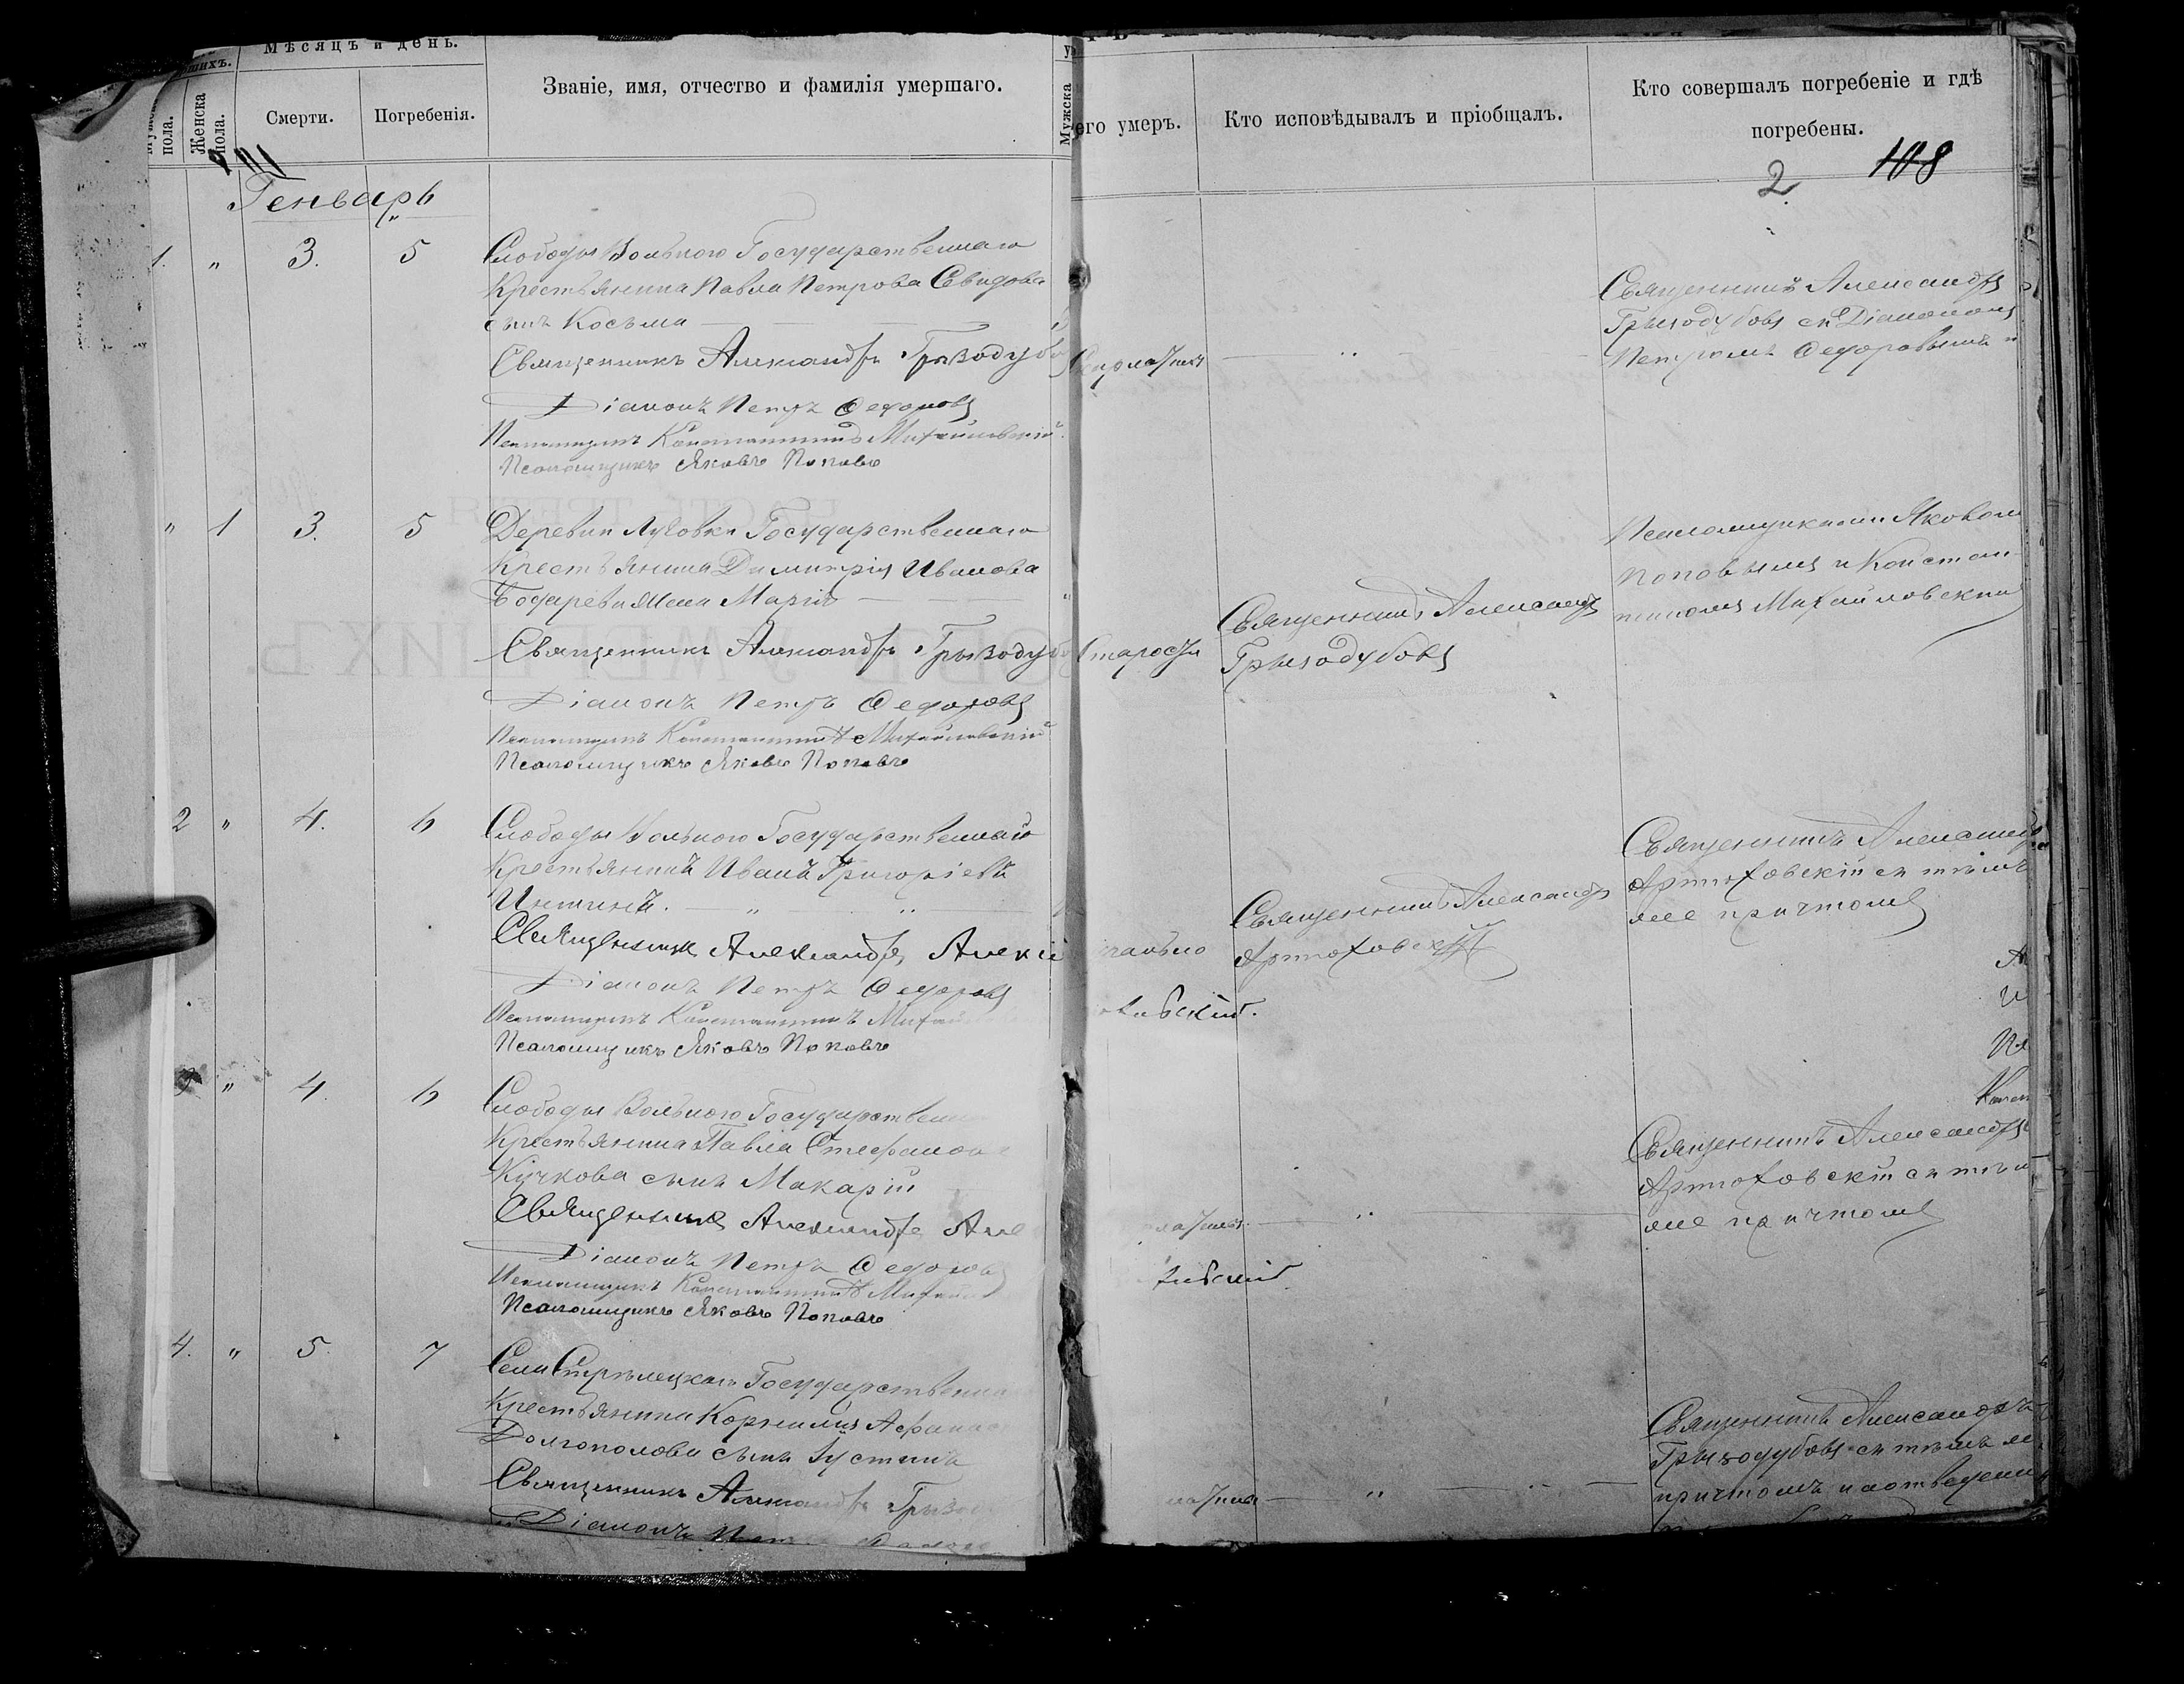 Мѣсяцъ и день.
шихъ.
пола.
Женска пола.
Смерти.
Погребенія.
Званіе, имя, отчество и фамилія умершаго.
Мужска
Генварь
1. " 3. 5
Слободы Вольного Государственнаго
Крестьянина Павла Петрова Свидова
сынъ Косьма
Священникъ Александръ Грызодубо
Діаконъ Петръ Федоровъ
Псаломщикъ Константинъ Михайловскій
Псаломщикъ Яковъ Поповъ
" 1 3. 5
Деревни Луковки Государственнаго
Крестьянина Димитрія Иванова
Бодарева жена Марія
Священникъ Александръ Грызодубо
Діаконъ Петръ Федоровъ
Псаломщикъ Константинъ Михайловскій
Псаломщикъ Яковъ Поповъ
2 " 4. 6
Слободы Вольного Государственный
Крестьянинъ Иванъ Григоріевъ
Священникъ Александръ
Діаконъ Петръ Федоровъ
Псаломщикъ Константинъ Михай
Псаломщикъ Яковъ Поповъ
3 " 4. 6
Слободы Вольного Государствен
Крестьянина Павла Стефанов
Кучкова сынъ Макарій
Священникъ Александръ
Діаконъ Петръ Федоровъ
Псаломщикъ Константинъ Михай
Псаломщикъ Яковъ Поповъ
4. " 5. 7
Села Стрѣлецкаго Государственна
Крестьянина Корнилія Афана
Долгополова сынъ Іустинъ
Священникъ Александръ Грызо
Діаконъ Петръ
его умеръ.
Кто исповѣдывалъ и пріобщалъ.
Кто совершалъ погребеніе и гдѣ
погребены.
2 108
Священникъ Александръ
Грызодубовъ съ Діакономъ
Петромъ Федоровымъ и
Псаломщиками Яковом
Поповымъ и Констан
тиномъ Михайловским
Старости
Священникъ Александръ
Грызодубовъ
Священникъ Александръ
Артюховскій съ тѣмъ
же причтомъ
Священникъ Александръ
Артюховскій
Священникъ Александръ
Артюховскій съ тѣм
же причтомъ
Священникъ Александръ
Грызодубовъ съ тѣмъ же
причтомъ